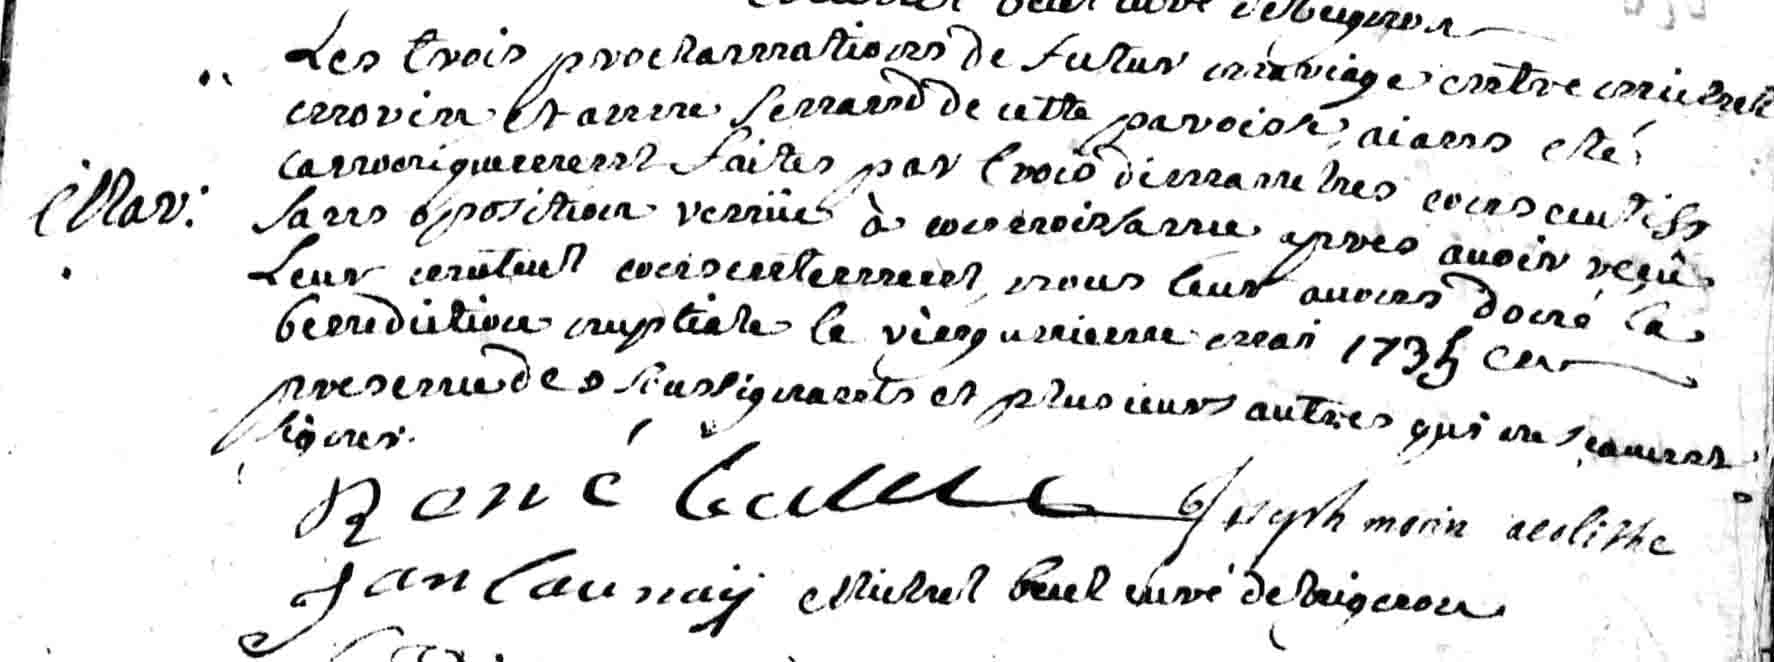 Michel beul curé de Brigeron
Les trois proclamations de futur mariage entre michel
morin et anne serrand de cette paroisse, aians eté
Mar: canoniquement faites par trois dimanches consecutifs
sans oposition venüe à connoissance apres avoir reçû
Leur mutuel consentement, nous leur avons doné la
benediction nuptiale le vingt unieme mai 1735 en
presence des soussignants et plusieurs autres qui ne scavent
signer.
René joseph morin acolithe
Jan Launaÿ Michel beul curé de